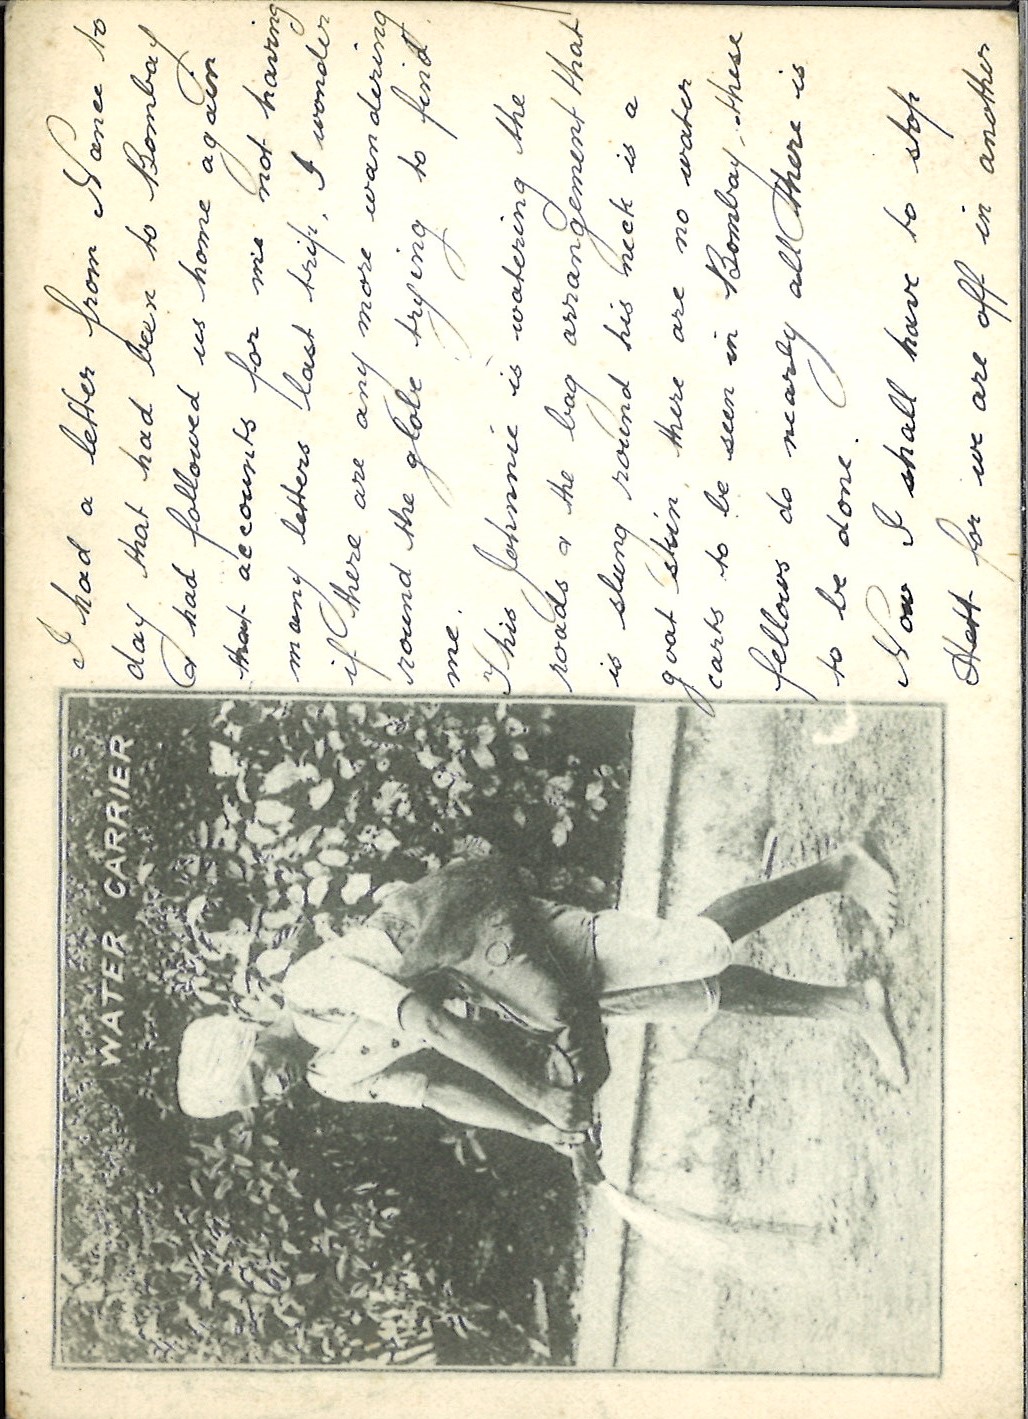 I had a letter from Nance to
day that had been to Bombay
& had followed us home again
that accounts for me not having
many letters last trip, I wonder
if there are any more wandering
round the globe trying to find
me.
This Johnnie is watering the
roads & the bag arrangement that
is slung round his neck is a
goat skin, there are no water
carts to be seen in Bombay, these
fellows do nearly all there is
to be done.
Now I shall have to stop
for we are off in another
WATER CARRIER